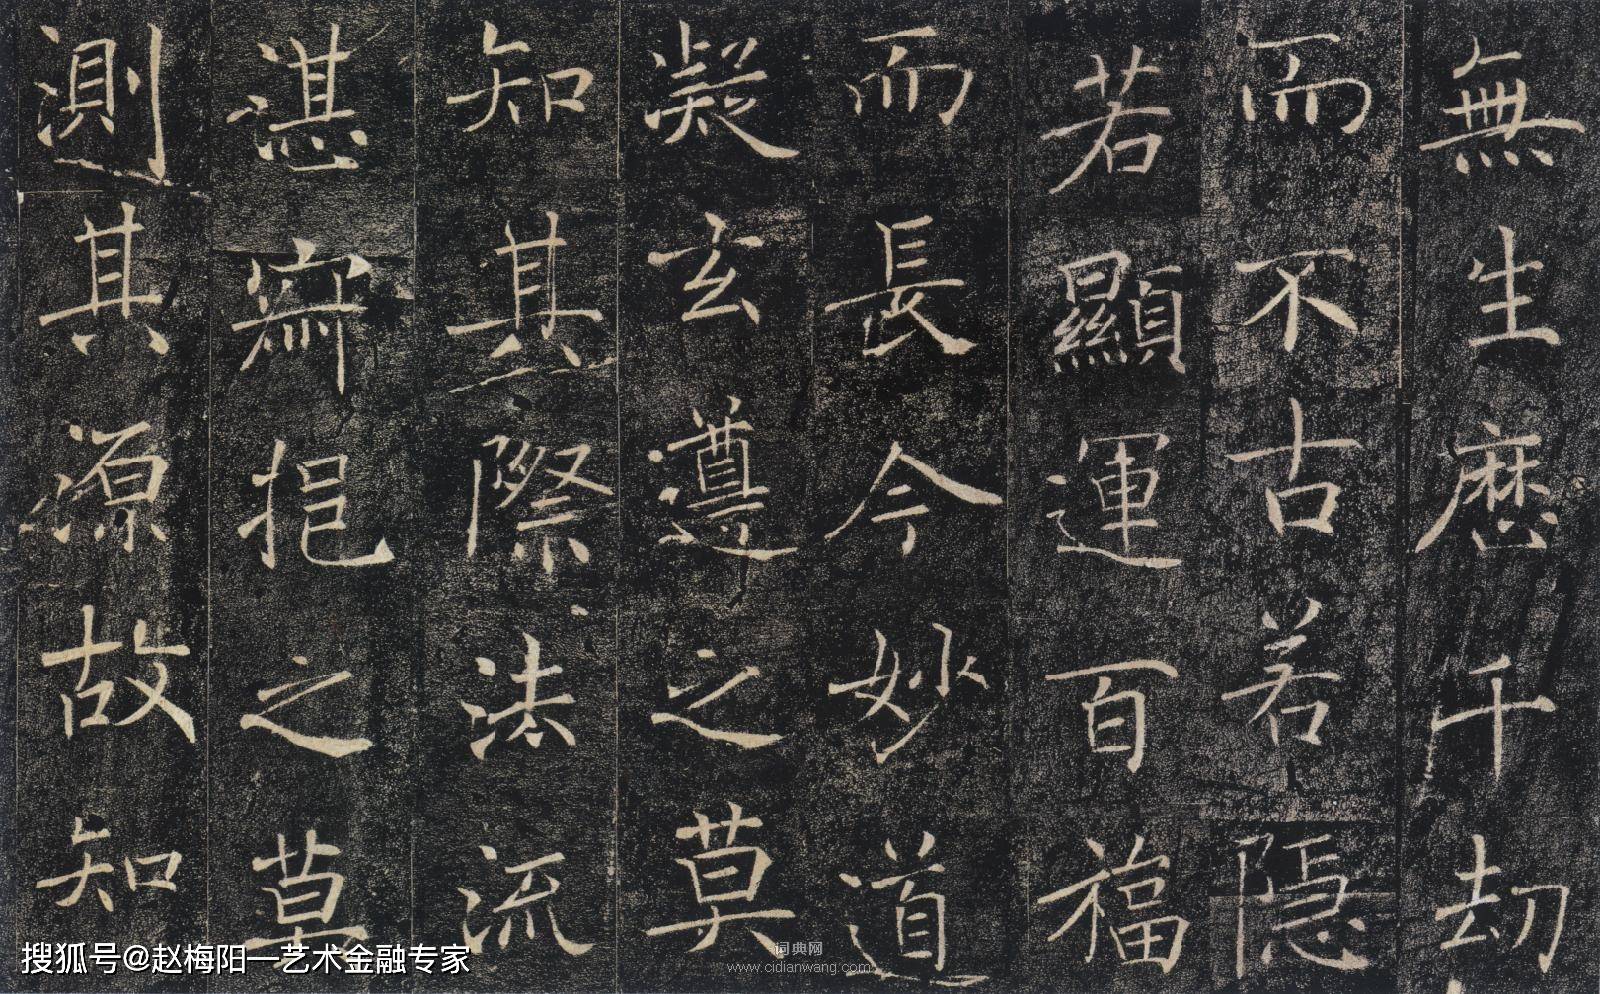 無生歷千劫
而不古若隱
若顯運百福
而長今妙道
凝玄遵之莫
知其際法流
湛寂挹之莫
測其源故知
搜狐号@赵梅阳—艺术金融专家
词典网
www.cidianwang.com